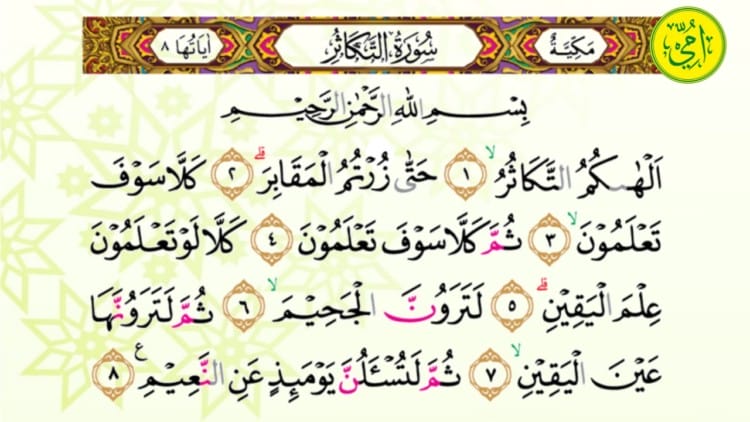 مَكِّيَّةٌ سُوْرَةُ التَّكَاثُرِ اٰيَاتُهَا ٨
اُمِّيّ
بِسْمِ اللّٰهِ الرَّحْمٰنِ الرَّحِيْمِ
اَلْهٰىكُمُ التَّكَاثُرُۙ ١ حَتّٰى زُرْتُمُ الْمَقَابِرَۗ ٢ كَلَّا سَوْفَ
تَعْلَمُوْنَۙ ٣ ثُمَّ كَلَّا سَوْفَ تَعْلَمُوْنَ ٤ كَلَّا لَوْ تَعْلَمُوْنَ
عِلْمَ الْيَقِيْنِۗ ٥ لَتَرَوُنَّ الْجَحِيْمَۙ ٦ ثُمَّ لَتَرَوُنَّهَا
عَيْنَ الْيَقِيْنِۙ ٧ ثُمَّ لَتُسْـَٔلُنَّ يَوْمَىِٕذٍ عَنِ النَّعِيْمِ ࣖ ٨